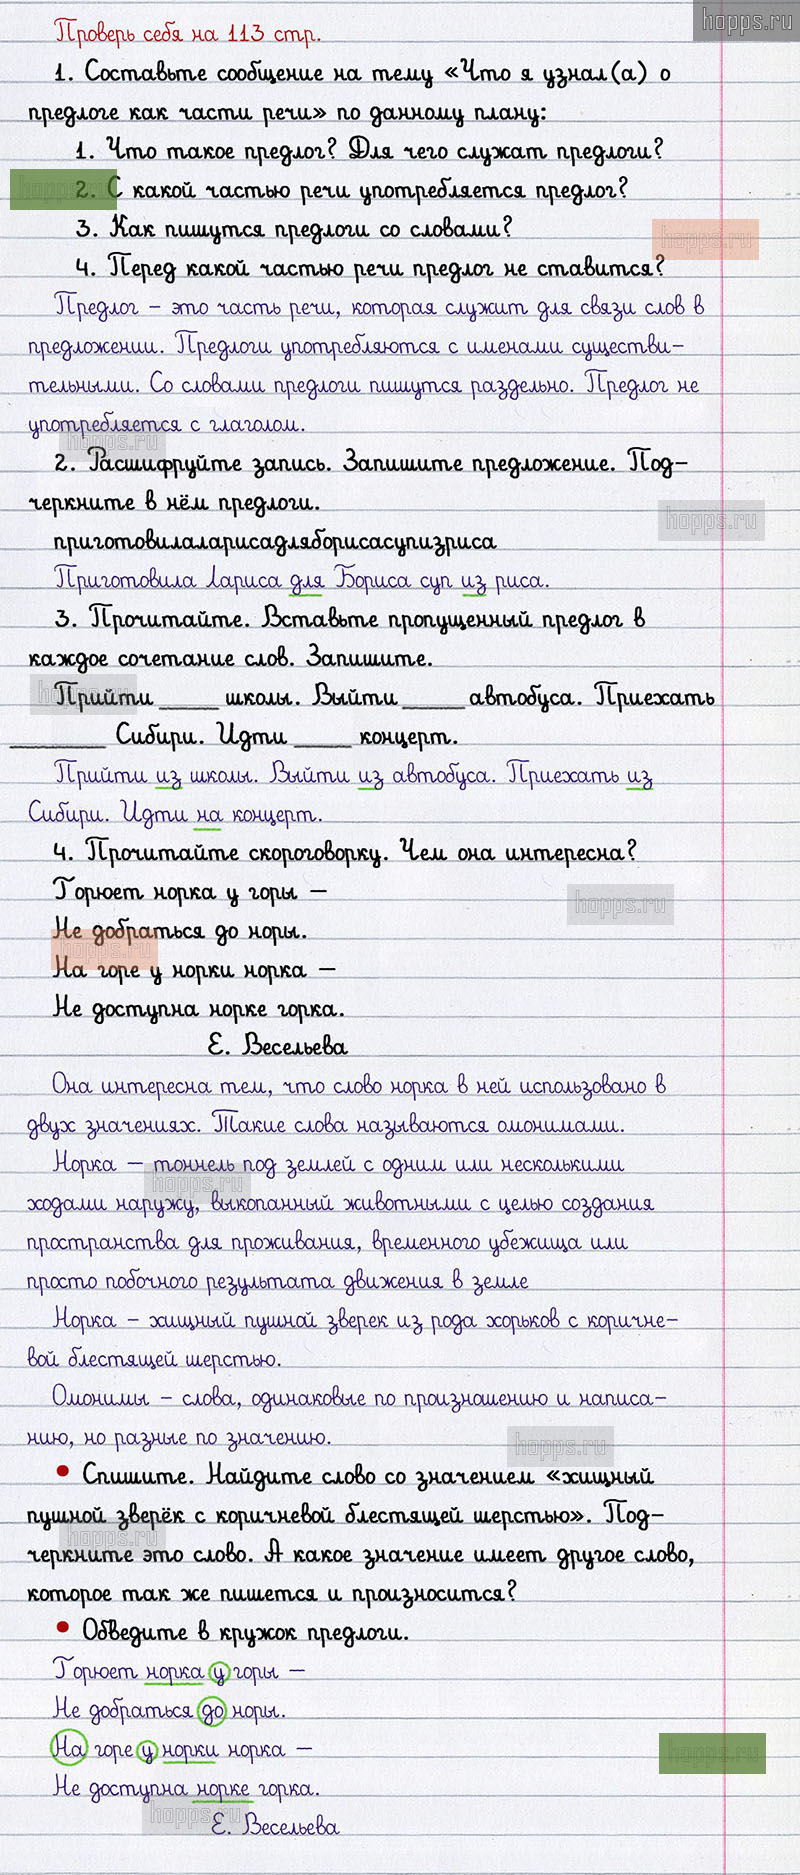 hopps.ru
Проверь себя на 113 стр.
1. Составьте сообщение на тему «Что я узнал(а) о
предлоге как части речи» по данному плану:
1. Что такое предлог? Для чего служат предлоги?
hopps.ru
2. С какой частью речи употребляется предлог?
3. Как пишутся предлоги со словами?
hopps.ru
4. Перед какой частью речи предлог не ставится?
Предлог – это часть речи, которая служит для связи слов в
предложении. Предлоги употребляются с именами существи-
тельными. Со словами предлоги пишутся раздельно. Предлог не
употребляется с глаголом.
hopps.ru
2. Расшифруйте запись. Запишите предложение. Под-
черкните в нём предлоги.
hopps.ru
приготовилаларисадляборисасупизриса
Приготовила Лариса для Бориса суп из риса.
3. Прочитайте. Вставьте пропущенный предлог в
каждое сочетание слов. Запишите.
hopps.ru
Прийти _____ школы. Выйти _____ автобуса. Приехать
________ Сибири. Идти _____ концерт.
Прийти из школы. Выйти из автобуса. Приехать из
Сибири. Идти на концерт.
4. Прочитайте скороговорку. Чем она интересна?
Горюет норка у горы –
hopps.ru
Не добраться до норы.
hopps.ru
На горе у норки норка –
Не доступна норке горка.
Е. Весельева
Она интересна тем, что слово норка в ней использовано в
двух значениях. Такие слова называются омонимами.
Норка – тоннель под землей с одним или несколькими
hopps.ru
ходами наружу, выкопанный животными с целью создания
пространства для проживания, временного убежища или
просто побочного результата движения в земле
Норка – хищный пушной зверек из рода хорьков с коричне-
вой блестящей шерстью.
Омонимы – слова, одинаковые по произношению и написа-
нию, но разные по значению.
hopps.ru
• Спишите. Найдите слово со значением «хищный
пушной зверёк с коричневой блестящей шерстью». Под-
hopps.ru
черкните это слово. А какое значение имеет другое слово,
которое так же пишется и произносится?
• Обведите в кружок предлоги.
Горюет норка у горы –
Не добраться до норы.
На горе у норки норка –
hopps.ru
Не доступна норке горка.
hopps.ru
Е. Весельева